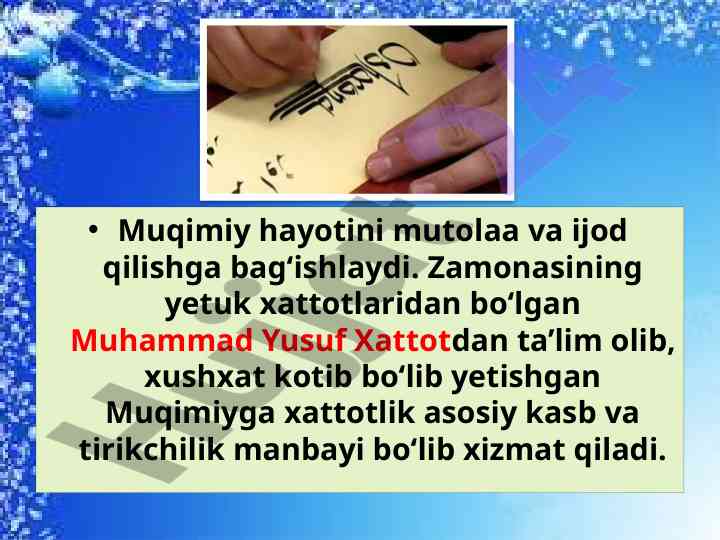 • Muqimiy hayotini mutolaa va ijod
qilishga bag‘ishlaydi. Zamonasining
yetuk xattotlaridan bo‘lgan
Muhammad Yusuf Xattotdan ta’lim olib,
xushxat kotib bo‘lib yetishgan
Muqimiyga xattotlik asosiy kasb va
tirikchilik manbayi bo‘lib xizmat qiladi.
Hujjat 24